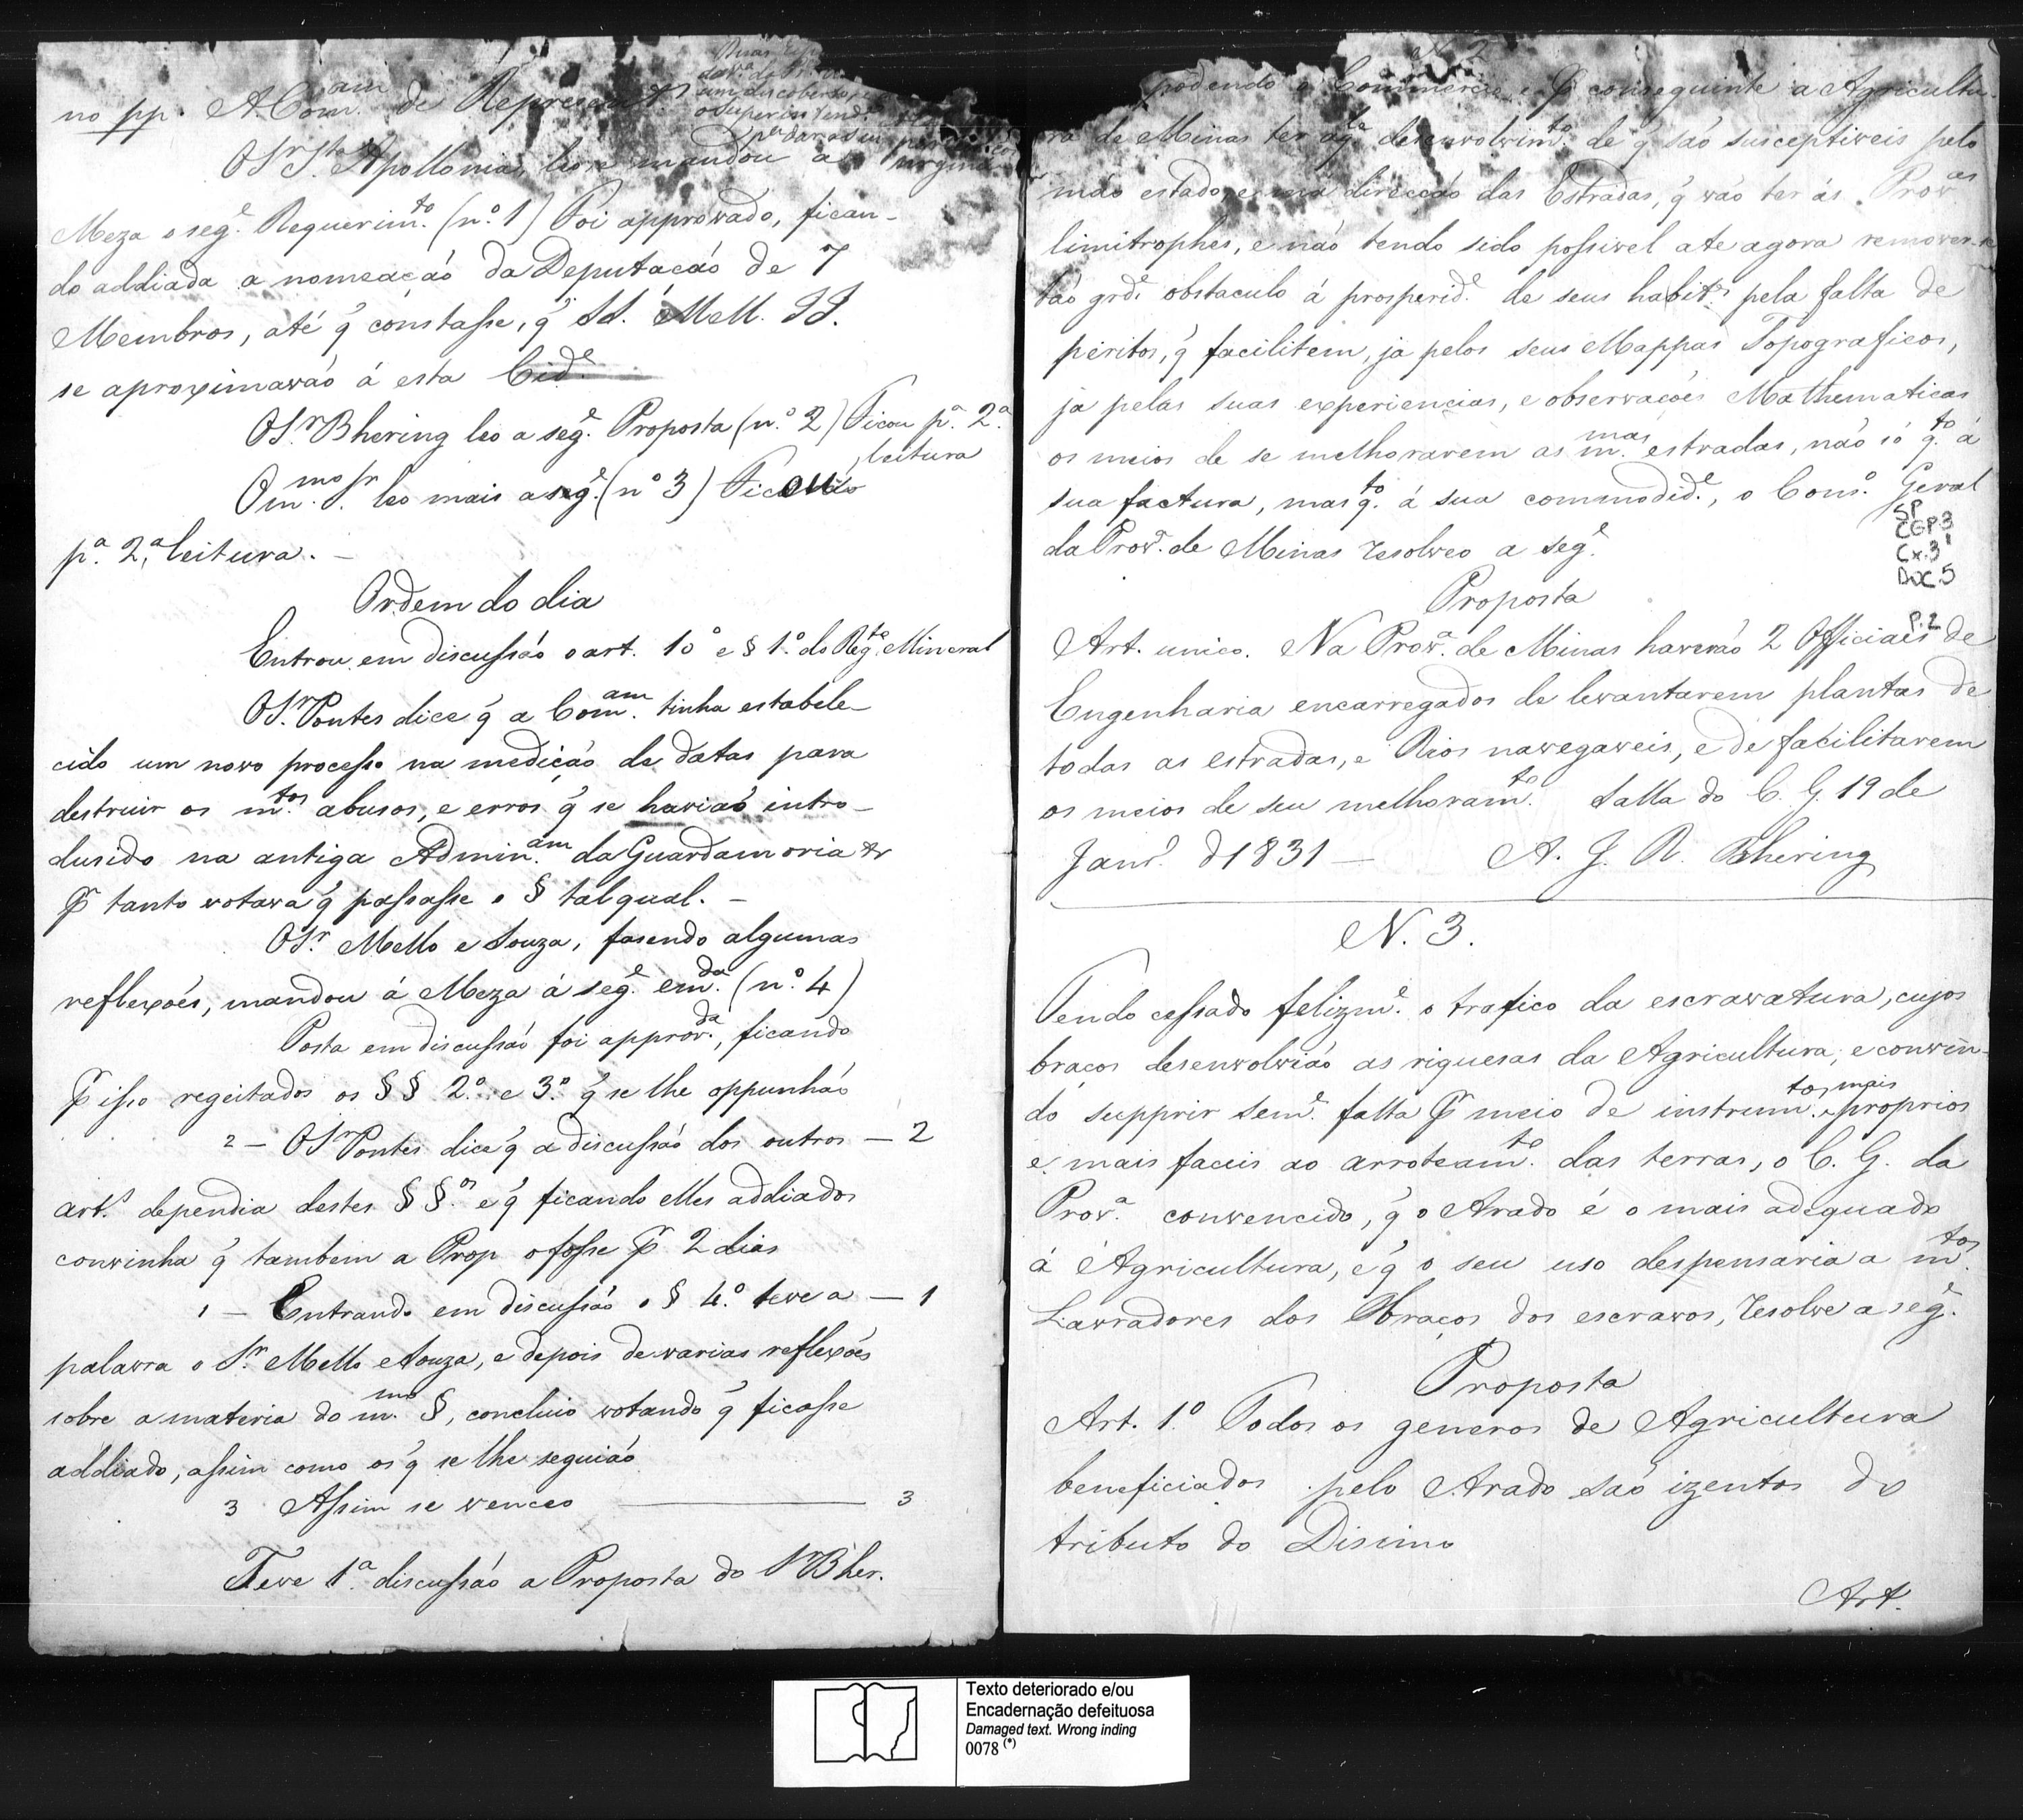 no pp. A Com.am de Represent
O Sr. Sta. Apollonia, leo e mandou a
Meza o seg.e Requerim.to (n.º 1) Foi approvado, fican-
do addiada a nomeação da Deputação de 7
Membros, até q̃ constasse, q̃ SS. MeM. JJ.
se aproximavão á esta Cid.e
O Sr. Bhering leo a seg.e Proposta (n.º 2) Ficou p.a 2.a
leitura
O m.mo Sr. leo mais a seg.e (nº 3) Ficou
p.a 2.a leitura. –
Ordem do dia
Entrou em discussão o art. 10º e § 1.º do Reg.to Mineral
O Sr. Pontes dice q̃ a Com.am tinha estabele-
cido um novo processo na medição de datas para
destruir os m.tos abusos, e erros q̃ se havião intro-
dusido na antiga Admin.am da Guardamoria &
P.r tanto votava q̃ passasse o § talqual. –
O Sr. Mello e Souza, fasendo algumas
reflexões, mandou á Meza á seg.e em.da (n.º 4)
Posta em discussão foi approv.da, ficando
P.r isso regeitados os §§ 2.º e 3.º q̃ se lhe oppunhão
2 – O Sr. Pontes dice q̃ a discussão dos outros – 2
art.s dependia destes §§.os e q̃ ficando elles addiados
convinha q̃ tambem a Prop o fosse P.r 2 dias
1 – Entrando em discussão o § 4.º teve a – 1
palavra o Sr. Mello e Souza, e depois de varias reflexões
sobre a materia do m.mo §, concluio votando q̃ ficasse
addiado, assim como os q̃ se lhe seguião
3 Assim se venceo 3
Teve 1.a discussão a Proposta do Sr. Bher.
N. 2
podendo o Commercio, e P.r conseguinte a Agricultu-
ra de Minas ter aq.le desenvolvim.to de q̃ são susceptiveis pelo
máo estado, e má direcção das Estradas, q̃ vão ter ás Prov.as
limitrophes, e não tendo sido possivel ate agora remover-se
tão grd.e obstaculo á prosperid.e de seus habit.es pela falta de
peritos, q̃ facilitem, ja pelos seus Mappas Topograficos,
ja pelas suas experiencias, e observações Mathematicas
os meios de se melhorarem as m.mas estradas, não só q.to á
sua factura, mas q.to á sua commodid.e, o Cons.º Geral
da Prov.a de Minas resolveo a seg.e
SP
CGP 3
Cx. 3
Doc. 5
P. 2
Proposta
Art. unico. Na Prov.a de Minas haverão 2 Officiaes de
Engenharia encarregados de levantarem plantas de
todas as estradas, e Rios navegaveis, e de facilitarem
os meios de seu melhoram.to Salla do C. G. 19 de
Janr.º d 1831 – A. J. R. Bhering
N. 3.
Tendo cessado felizm.e o trafico da escravatura, cujos
braços desenvolvião as riquesas da Agricultura, e convin-
do supprir sem.e falta P.r meio de instrum.tos mais proprios
e mais faceis ao arroteam.to das terras, o C. G. da
Prov.a convencido, q̃ o Arado é o mais adequado
á Agricultura, e q̃ o seu uso despensaria a m.tos
Lavradores dos braços dos escravos, resolve a seg.e
Proposta
Art. 1.º Todos os generos de Agricultura
beneficiados pelo Arado são izentos do
tributo do Disimo
Art.
Texto deteriorado e/ou
Encadernação defeituosa
Damaged text. Wrong inding
0078 (*)